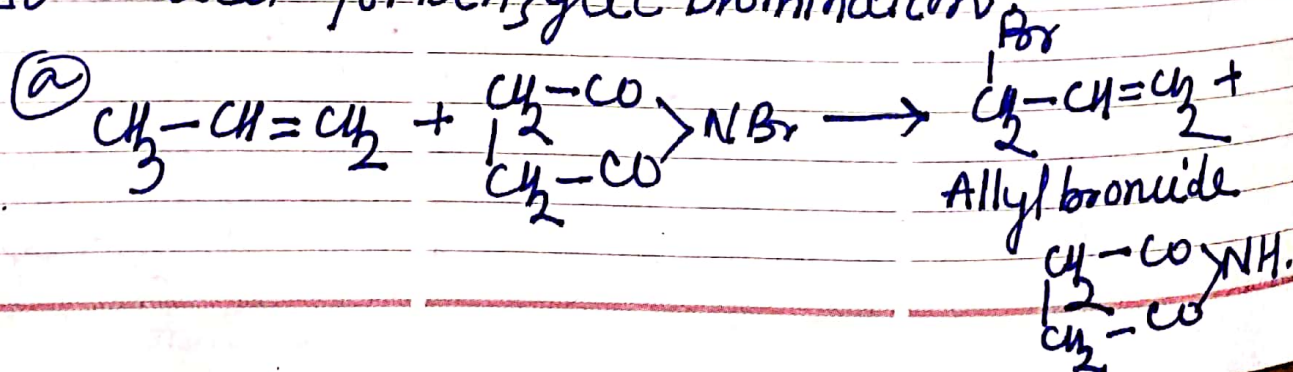 for benzylic bromination.
(a) CH3–CH=CH2 + CH2–CO CH2–CO >NBr → Br CH2–CH=CH2 +
Allyl bromide
CH2–CO CH2–CO >NH.